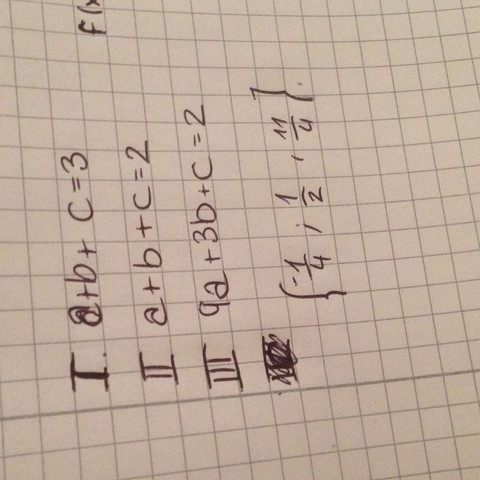 f(x
I. a+b+c=3
II a+b+c=2
III 9a+3b+c=2
{-1/4 ; 1/2 , 11/4}